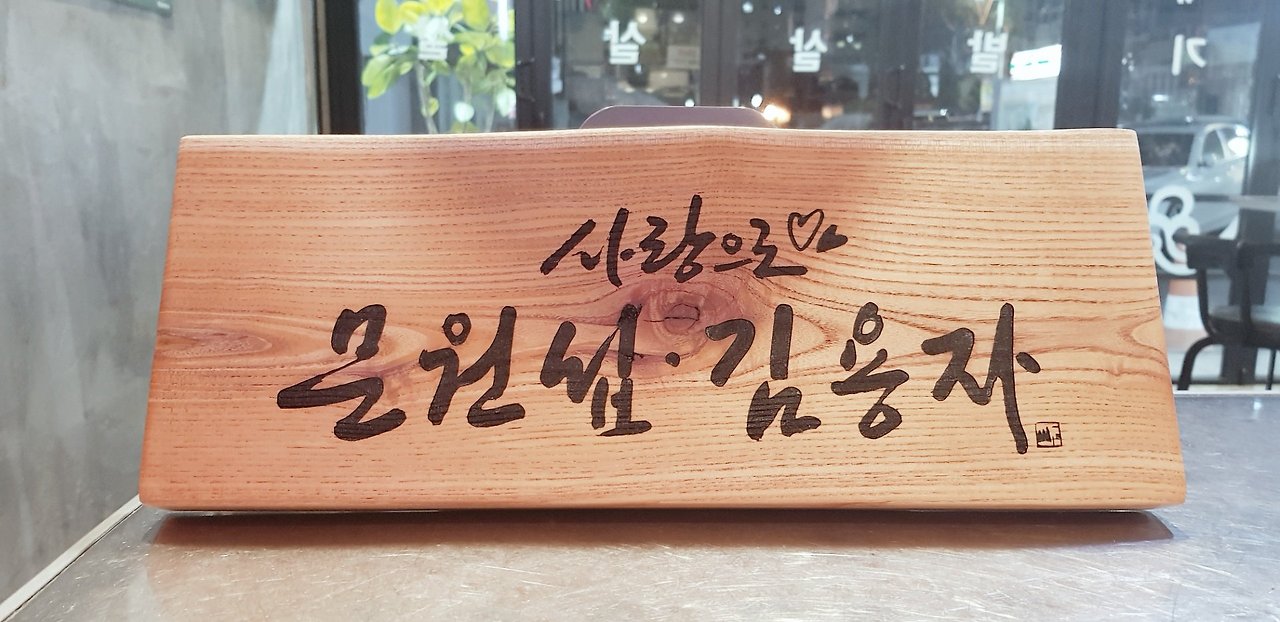 사랑으로♡
문원섭·김용자